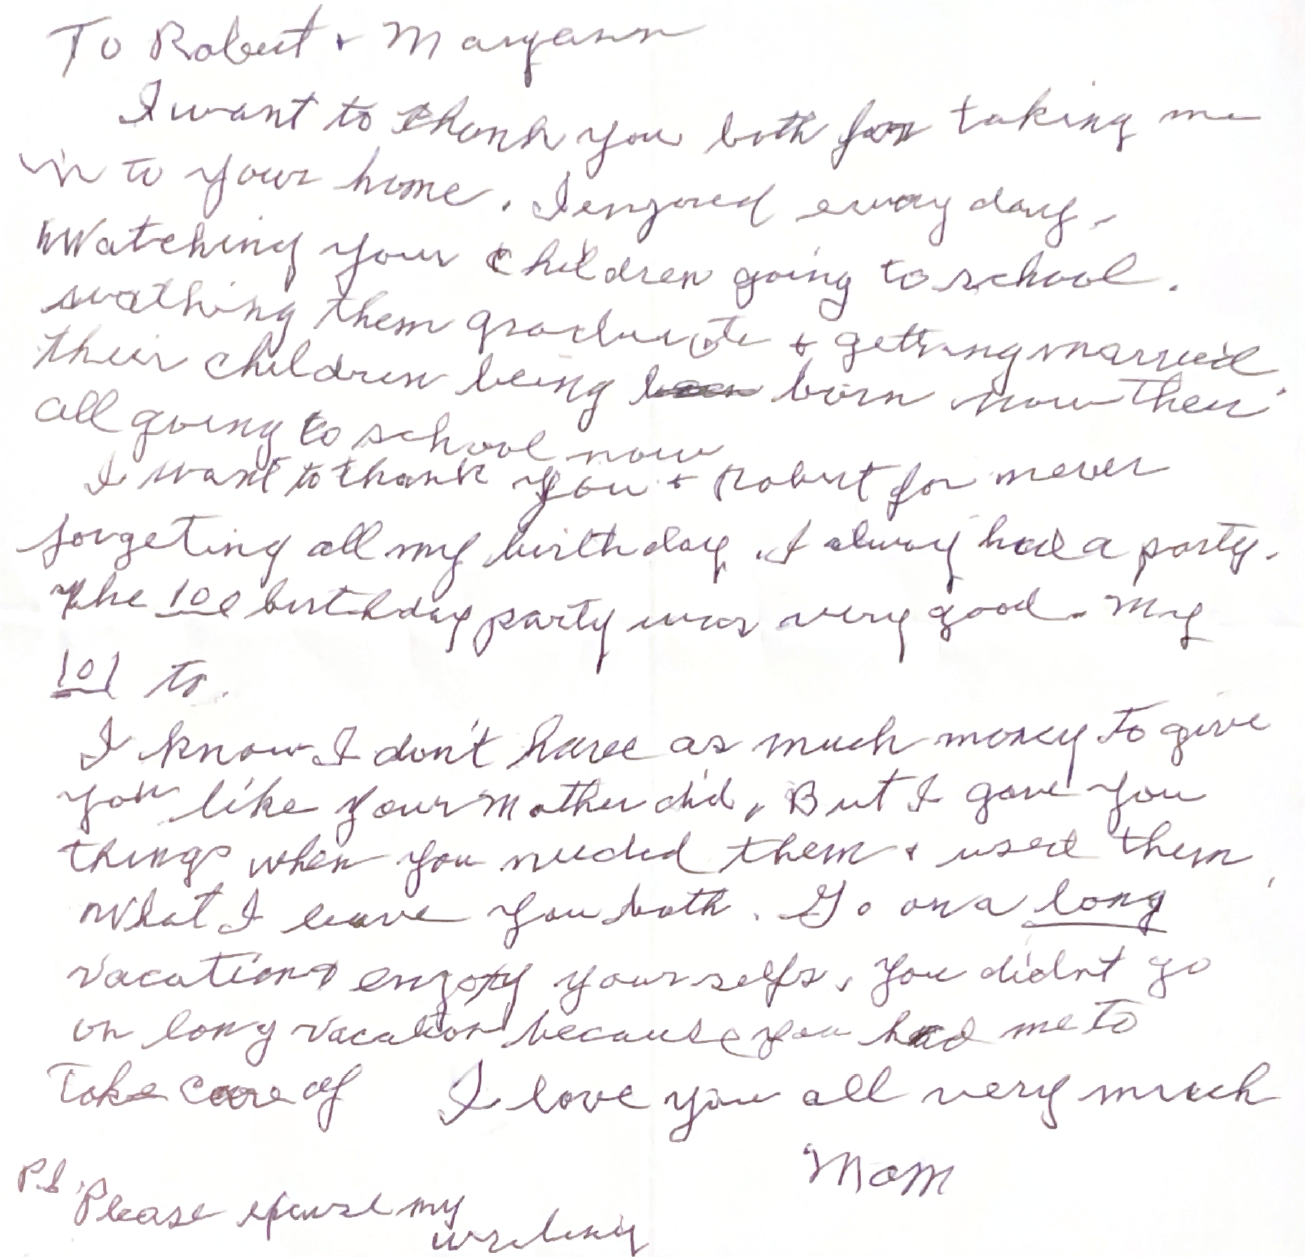 To Robert + Maryann
I want to thank you both for taking me
in to your home. I enjoyed every day.
Watching your children going to school.
wathing them graduate + getting married.
their children being born now their
all going to school now
I want to thank you + Robert for never
forgeting all my birthday. I alway had a party.
The 100 birthday party was very good. My
101 to.
I know I don't have as much money to give
you like your Mother did, But I gave you
things when you needed them + used them.
What I leave you both. Go on a long
vacation + enjoy yourselfs. You didn't go
on long vacation because you had me to
Take care of I love you all very much
Mom
P.S. Please excuse my
writing